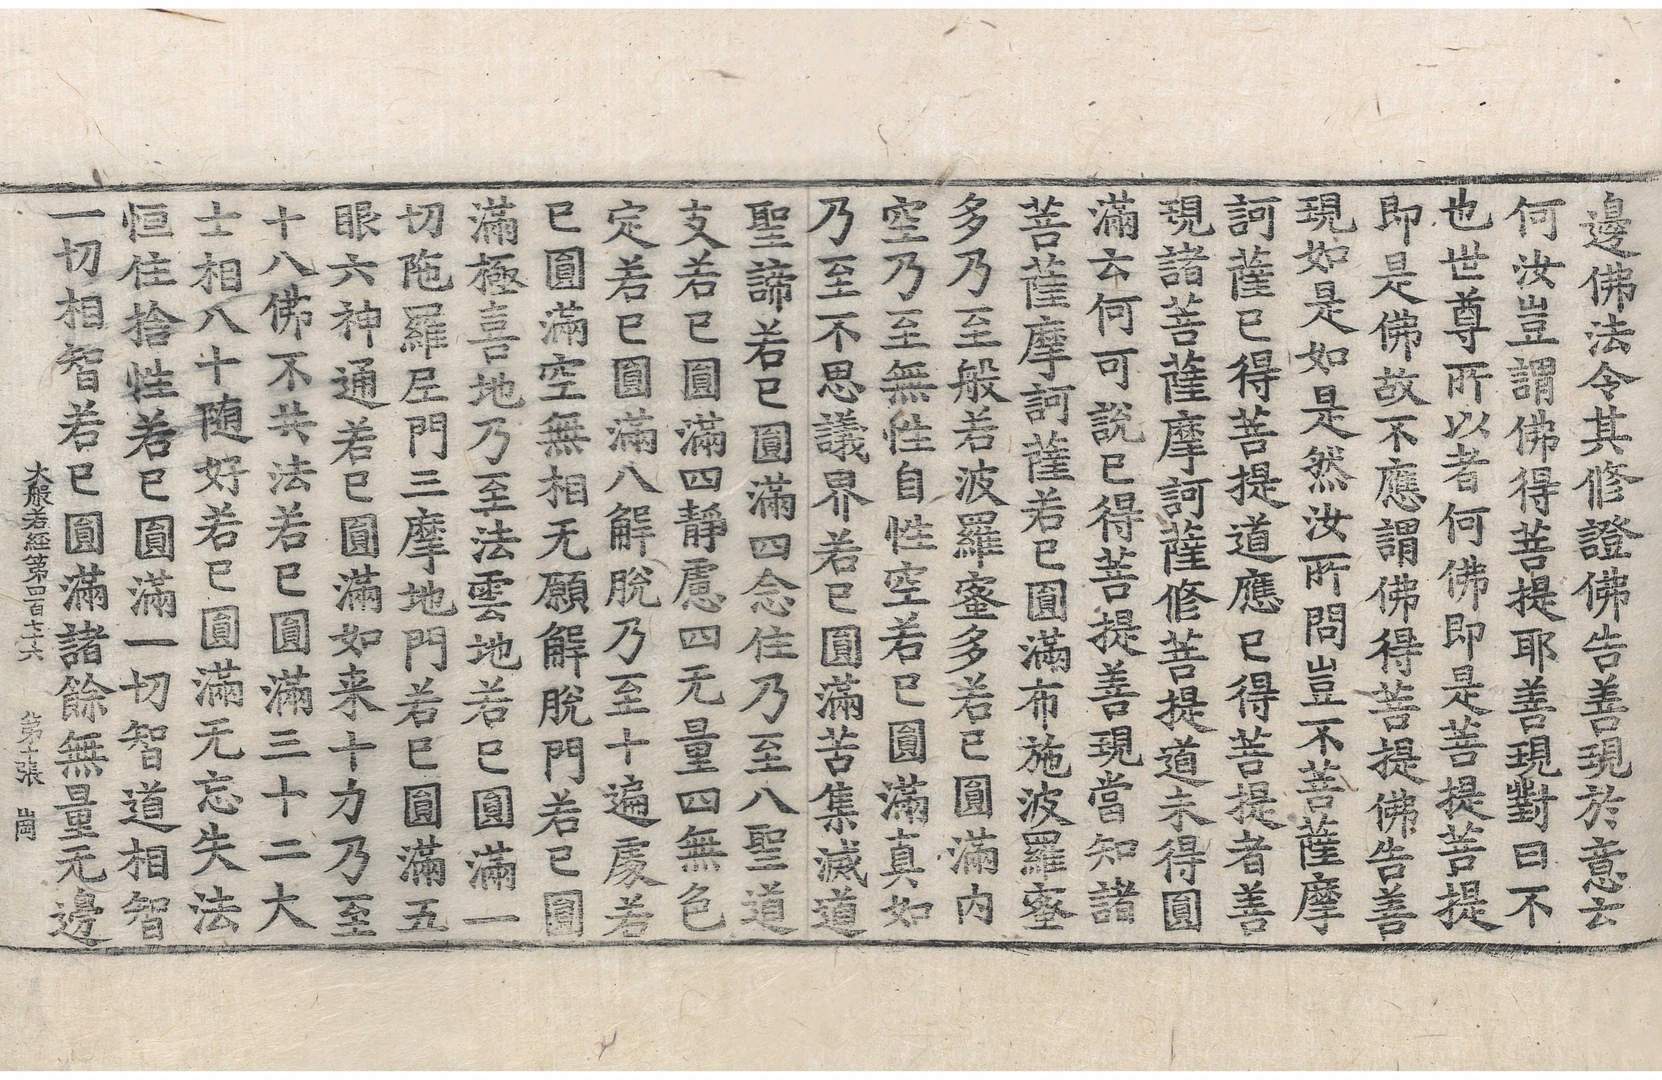 邊佛法令其修證佛告善現於意云
何汝豈謂佛得菩提耶善現對曰不
也世尊所以者何佛即是菩提菩提
即是佛故不應謂佛得菩提佛告善
現如是如是然汝所問豈不菩薩摩
訶薩已得菩提道應已得菩提者善
現諸菩薩摩訶薩修菩提道未得圓
滿云何可說已得菩提善現當知諸
菩薩摩訶薩若已圓滿布施波羅蜜
多乃至般若波羅蜜多若已圓滿內
空乃至無性自性空若已圓滿真如
乃至不思議界若已圓滿苦集滅道
聖諦若已圓滿四念住乃至八聖道
支若已圓滿四靜慮四无量四無色
定若已圓滿八解脫乃至十遍處若
已圓滿空無相无願解脫門若已圓
滿極喜地乃至法雲地若已圓滿一
切陁羅尼門三摩地門若已圓滿五
眼六神通若已圓滿如来十力乃至
十八佛不共法若已圓滿三十二大
士相八十随好若已圓滿无忘失法
恒住捨性若已圓滿一切智道相智
一切相智若已圓滿諸餘無量无邊
大般若経第四百七十六 第十張 崗